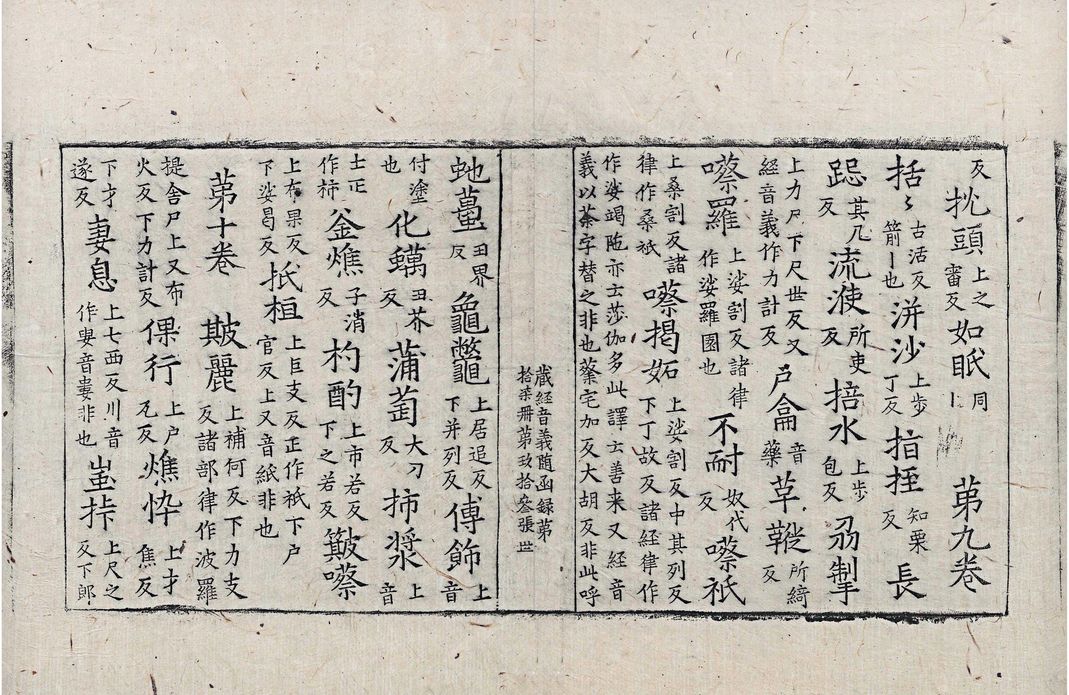 反 抌頭 上之審反 如眂 同上 第九卷
括〻 古活反箭丨也 洴沙 上步丁反 掿挃 知栗反 長
跽 其几反 流渡 所吏反 掊水 上步包反 刕掣
上力尸下尺世反又經音義作力計反 戶侖 音藥 草鞵 所綺反
嚓羅 上娑割反諸律作娑羅國也 不耐 奴代反 嚓祇
上桑割反諸律作桑祇 嚓揭妬 上娑割反中其列反下丁故反諸經律作
作娑竭陁亦云莎伽多此譯云善来又經音義以蔡字替之非也蔡宅加反大胡反非此呼
蔵經音義随函録第拾柒冊第玖拾叄張 世
虵蠆 丑界反 龜鼈 上居追反下并列反 傅飾 上音
付塗也 化蠇 丑芥反 蒲萄 大刀反 柿漿 上音
士正作柿 釜燋 子消反 杓酌 上市若反下之若反 簸嚓
上布果反下娑曷反 扺桓 上巨支反正作祇下戶官反上又音紙非也
第十卷 𤿺麗 上補何反下力支反諸部律作波羅
提舍尸上又布火反下力計反 倮行 上戶瓦反 燋悴 上才焦反
下才遂反 妻息 上七西反川音作婁音婁非也 蚩挊 上尺之反下郎